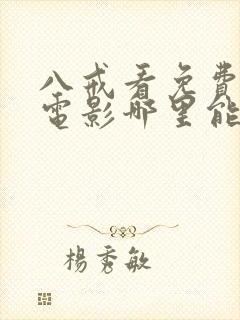 八戒看免費
電影哪里能
楊秀敏